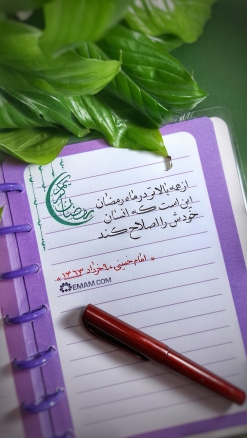 رمضان کریم
از همه بالاتر در ماه رمضان
این است که انسان
خودش را اصلاح کند
امام خمینی ۹ خرداد ۱۳۶۳
EMAM.COM